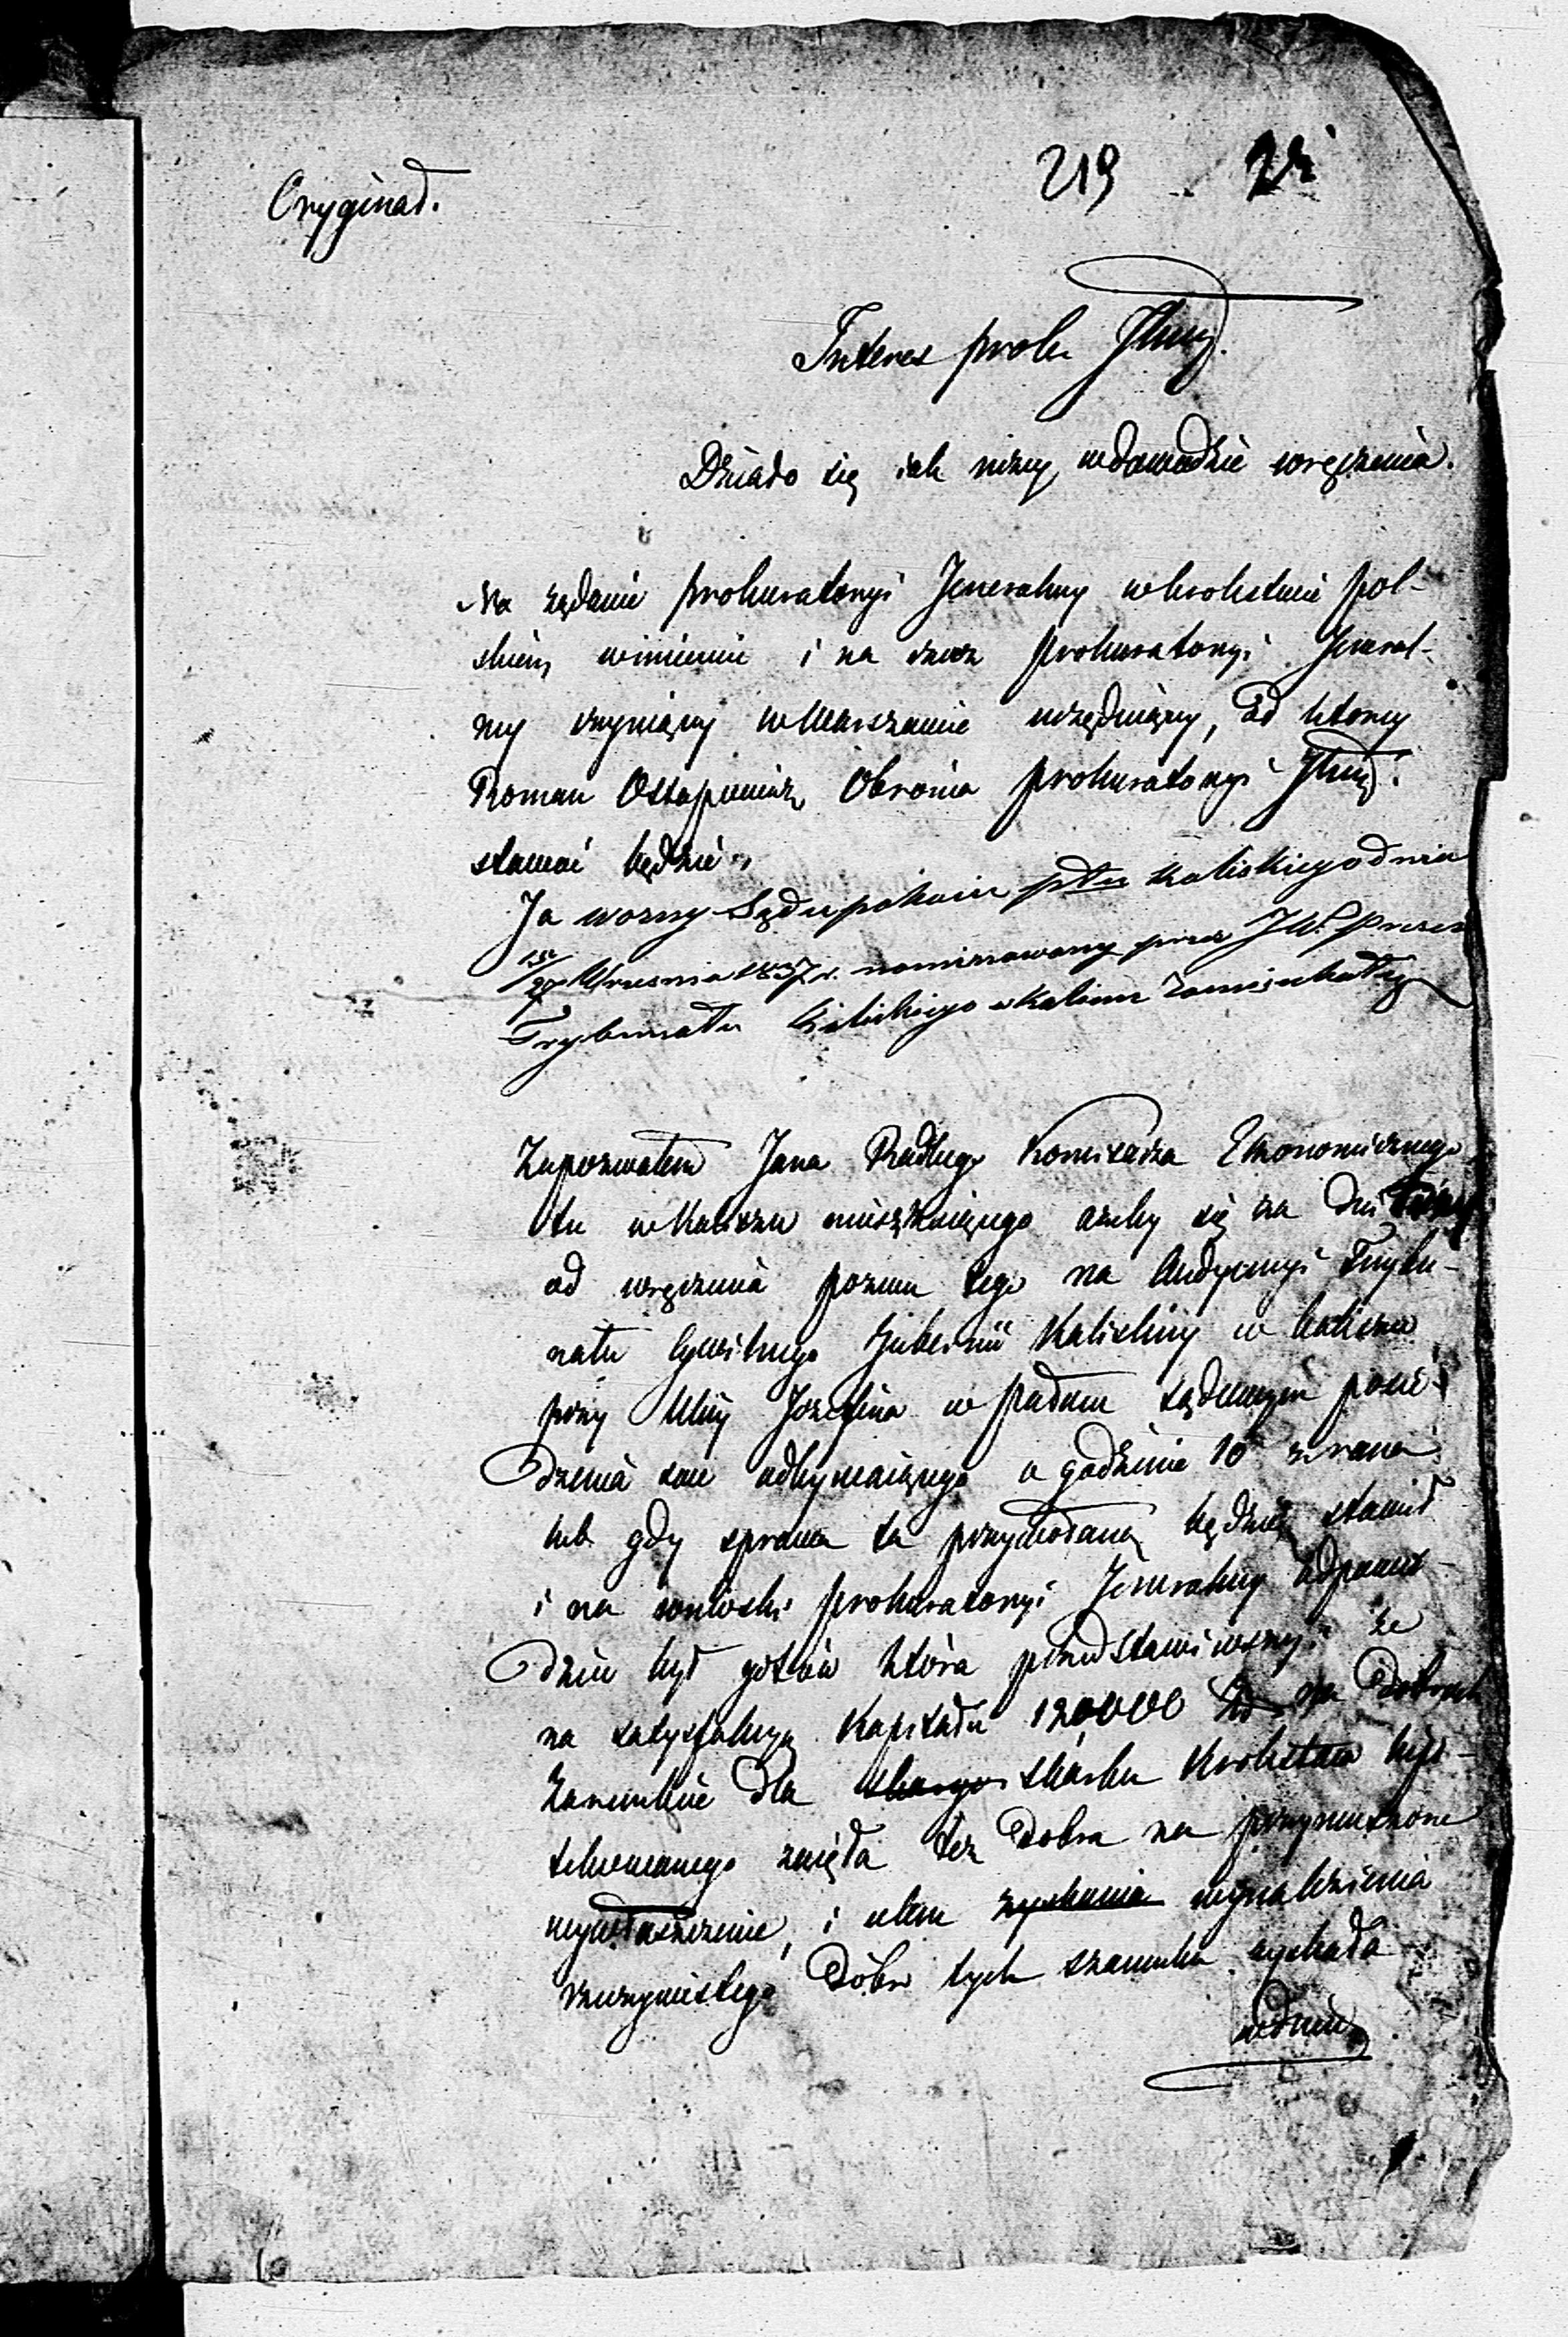 Oryginał.
219
Interes prok. Jlny.
Działo się iak niżey w dowodzie wręczenia.
Na żądanie Prokuratoryi Jeneralney w Królestwie Pol-
skiem, w imieniu i na rzecz Prokuratoryi Jeneral-
ney czyniącey w Warszawie urzęduiącey, za ktorey
Roman Ostapowicz Obrońca Prokuratoryi Jlney
stawać będzie.
Ja wozny Sądu pokoiu ptu Kaliskiego dnia
15/27 Wresnia 1837 r. nominowany przez JW. Preze
Trybunału Kaliskiego w Kaliszu zamieszkały
Zapozwałem Jana Radługo Komisarza Ekonomicznego
tu w Kaliszu mieszkaiącego azeby się za dni
od wręczenia pozwu tego na Audyencyi Trybu-
nału Cywilnego Gubernii Kaliskiey w Kaliszu
przy Ulicy Józefina w Pałacu sądowym posie-
dzenia swe odbywaiącego o godzinie 10 z rana
lub gdy sprawa ta przywołaną będzie, stawił
i na wnioski Prokuratoryi Jeneralney odpowie-
dzieć był gotów która przedstawiwszy: że
na satysfakcyą Kapitału 120000 na Dobrach
dla skarbu Królestwa hypo-
tekowanego zaięła też Dobra na przymuszone
wywłaszczenie, i celem wynalezienia
rzeczywistego Dóbr tych szacunku uzyskała
w dniu